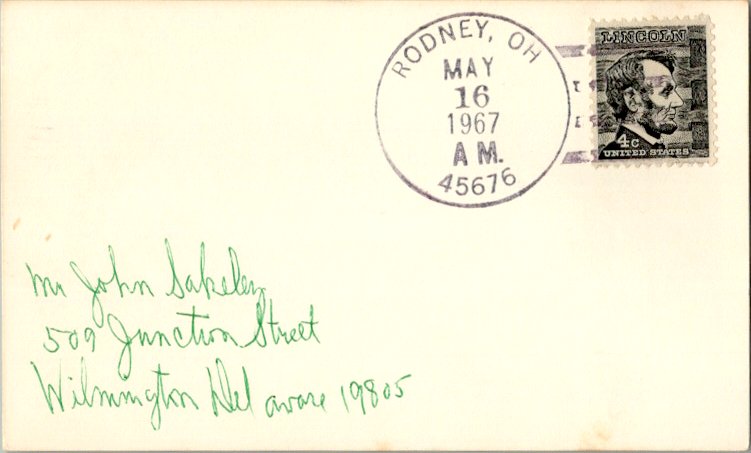 RODNEY, OH
MAY
16
1967
A M.
45676
LINCOLN
4c
UNITED STATES
Mr John Sakeley
509 Junction Street
Wilmington Delaware 19805